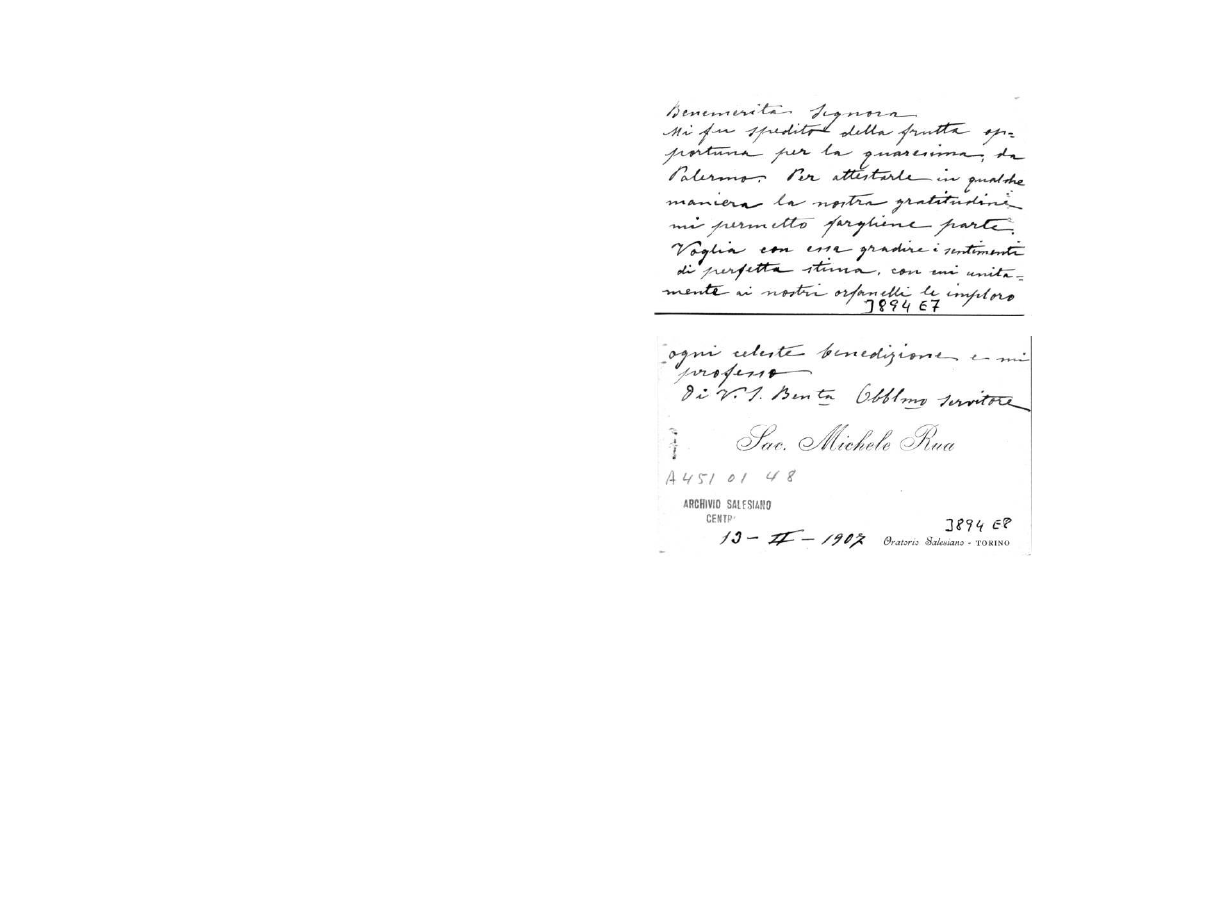 Benemerita Signora
Mi fu spedito della frutta op=
portuna per la quaresima, da
Palermo. Per attestarle in qualche
maniera la nostra gratitudine
mi permetto fargliene parte.
Voglia con essa gradire i sentimenti
di perfetta stima, con cui unita=
mente ai nostri orfanelli le imploro
3894 E7
ogni celeste benedizione e mi
professo
Di V. S. Benta Obblmo servitore
Sac. Michele Rua
A 451 01 48
ARCHIVIO SALESIANO
CENTR
3894 E8
13 - II - 1907
Oratorio Salesiano - TORINO